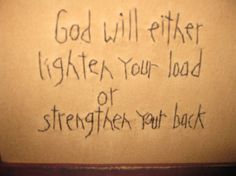 God will either
lighten your load
or
strengthen your back